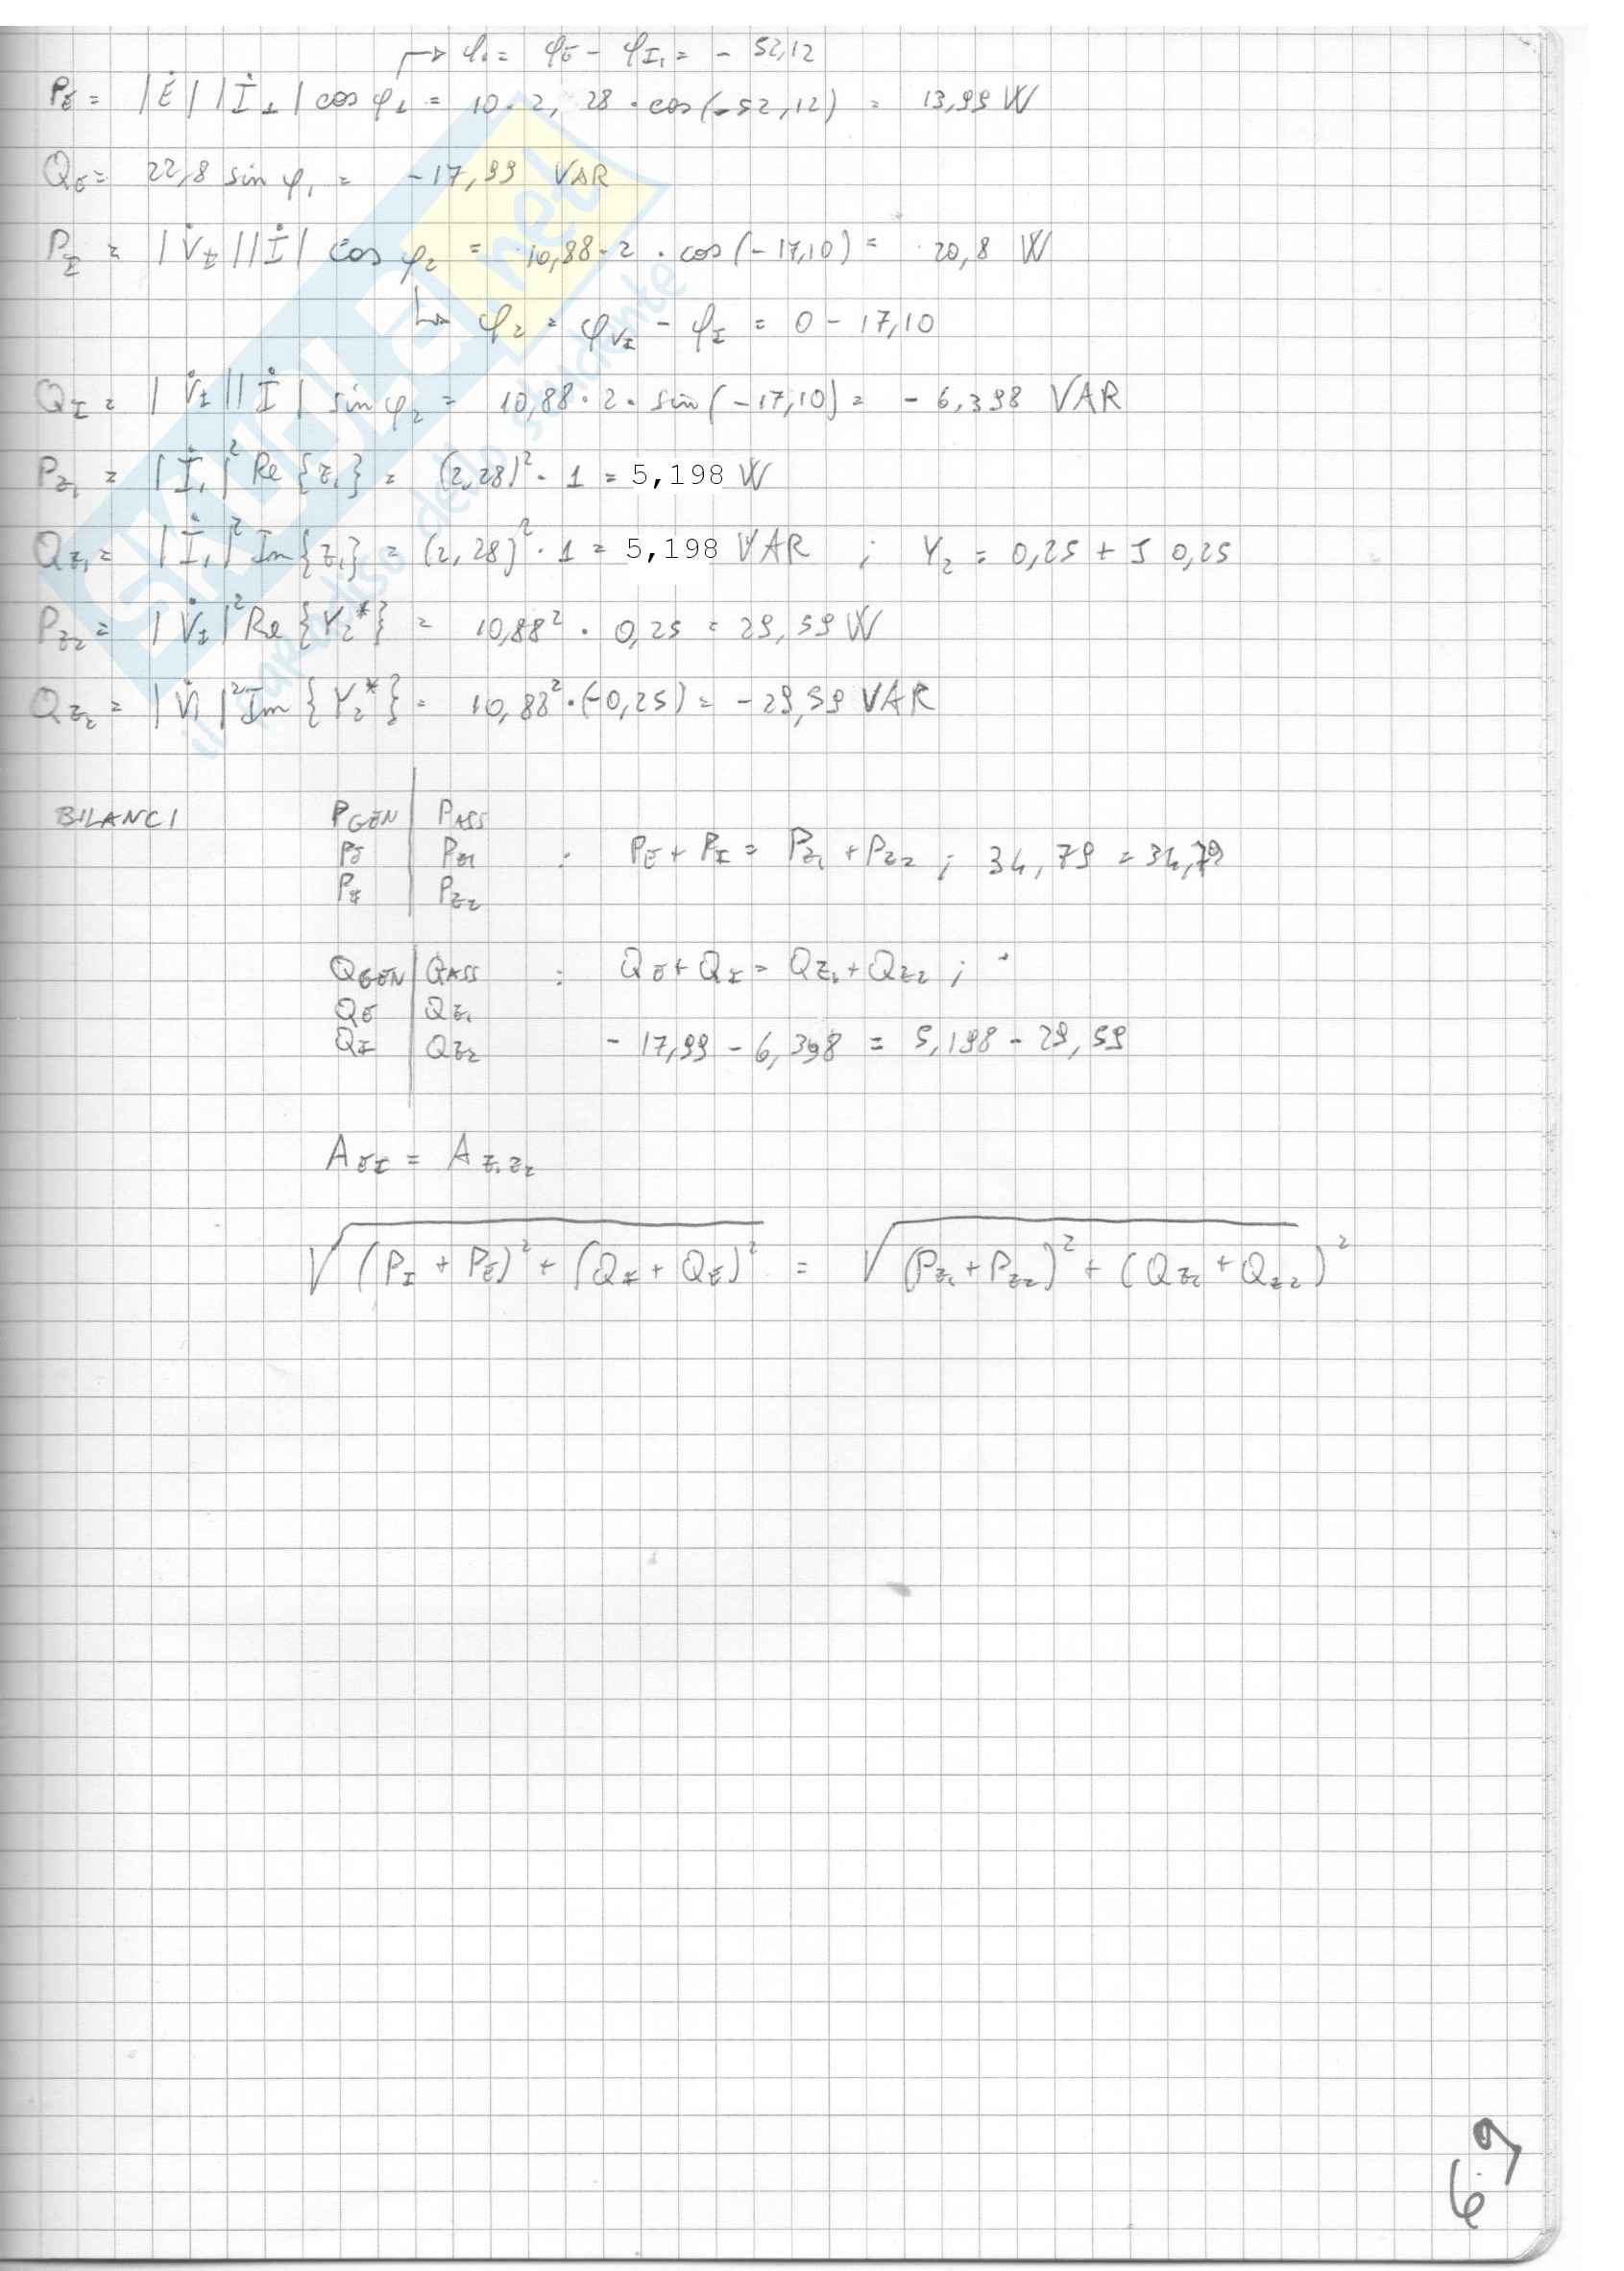 ↱ φ₁ = φE - φI₁ = - 52,12
PE = |Ė| |İ₁| cos φ₁ = 10 · 2,28 · cos(-52,12) = 13,99 W
QE = 22,8 sin φ₁ = -17,99 VAR
PI = |V̇I| |İ| cos φ₂ = 10,88 · 2 · cos(-17,10) = 20,8 W
↳ φ₂ = φVI - φI = 0 - 17,10
QI = |V̇I| |İ| sin φ₂ = 10,88 · 2 · sin(-17,10) = - 6,398 VAR
PZ₁ = |İ₁|² Re{Z₁} = (2,28)² · 1 = 5,198 W
QZ₁ = |İ₁|² Im{Z₁} = (2,28)² · 1 = 5,198 VAR ; Y₂ = 0,25 + J 0,25
PZ₂ = |V̇I|² Re{Y₂*} = 10,88² · 0,25 = 29,59 W
QZ₂ = |V̇I|² Im{Y₂*} = 10,88² · (-0,25) = -29,59 VAR
BILANCI PGEN | PASS
PE | PZ₁ : PE + PI = PZ₁ + PZ₂ ; 34,79 = 34,79
PI | PZ₂
QGEN | QASS : QE + QI = QZ₁ + QZ₂ ;
QE | QZ₁
QI | QZ₂ - 17,99 - 6,398 = 5,198 - 29,59
AEI = AZ₁Z₂
√(PI + PE)² + (QI + QE)² = √(PZ₁ + PZ₂)² + (QZ₁ + QZ₂)²
6.9
SKUOLA.net
il paradiso dello studente